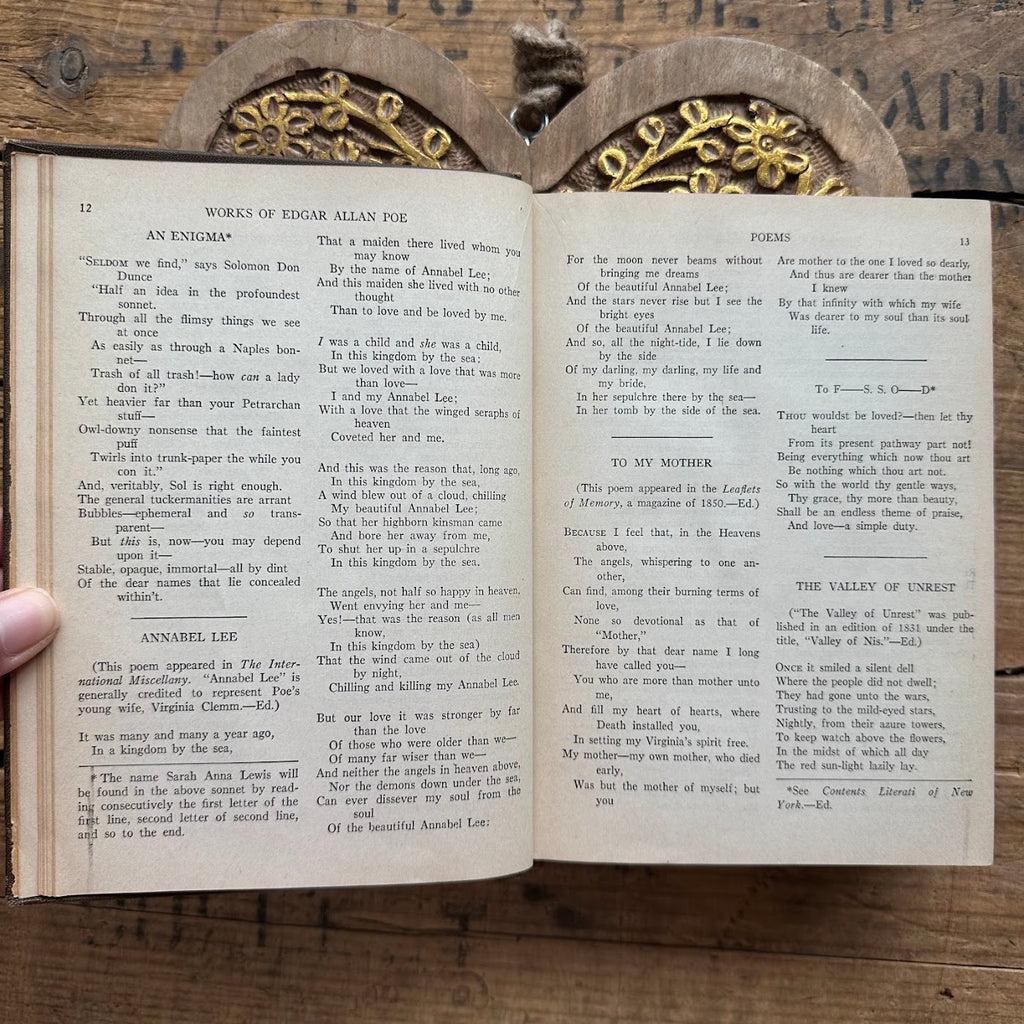 12
WORKS OF EDGAR ALLAN POE
AN ENIGMA*
"SELDOM we find," says Solomon Don
Dunce
"Half an idea in the profoundest
sonnet.
Through all the flimsy things we see
at once
As easily as through a Naples bon-
net—
Trash of all trash!—how can a lady
don it?"
Yet heavier far than your Petrarchan
stuff—
Owl-downy nonsense that the faintest
puff
Twirls into trunk-paper the while you
con it."
And, veritably, Sol is right enough.
The general tuckermanities are arrant
Bubbles—ephemeral and so trans-
parent—
But this is, now—you may depend
upon it—
Stable, opaque, immortal—all by dint
Of the dear names that lie concealed
within't.
ANNABEL LEE
(This poem appeared in The Inter-
national Miscellany. "Annabel Lee" is
generally credited to represent Poe's
young wife, Virginia Clemm.—Ed.)
It was many and many a year ago,
In a kingdom by the sea,
* The name Sarah Anna Lewis will
be found in the above sonnet by read-
ing consecutively the first letter of the
first line, second letter of second line,
and so to the end.
That a maiden there lived whom you
may know
By the name of Annabel Lee;
And this maiden she lived with no other
thought
Than to love and be loved by me.
I was a child and she was a child,
In this kingdom by the sea;
But we loved with a love that was more
than love—
I and my Annabel Lee;
With a love that the winged seraphs of
heaven
Coveted her and me.
And this was the reason that, long ago,
In this kingdom by the sea,
A wind blew out of a cloud, chilling
My beautiful Annabel Lee;
So that her highborn kinsman came
And bore her away from me,
To shut her up in a sepulchre
In this kingdom by the sea.
The angels, not half so happy in heaven,
Went envying her and me—
Yes!—that was the reason (as all men
know,
In this kingdom by the sea)
That the wind came out of the cloud
by night,
Chilling and killing my Annabel Lee.
But our love it was stronger by far
than the love
Of those who were older than we—
Of many far wiser than we—
And neither the angels in heaven above,
Nor the demons down under the sea,
Can ever dissever my soul from the
soul
Of the beautiful Annabel Lee:
POEMS
13
For the moon never beams without
bringing me dreams
Of the beautiful Annabel Lee;
And the stars never rise but I see the
bright eyes
Of the beautiful Annabel Lee;
And so, all the night-tide, I lie down
by the side
Of my darling, my darling, my life and
my bride,
In her sepulchre there by the sea—
In her tomb by the side of the sea.
TO MY MOTHER
(This poem appeared in the Leaflets
of Memory, a magazine of 1850.—Ed.)
BECAUSE I feel that, in the Heavens
above,
The angels, whispering to one an-
other,
Can find, among their burning terms of
love,
None so devotional as that of
"Mother,"
Therefore by that dear name I long
have called you—
You who are more than mother unto
me,
And fill my heart of hearts, where
Death installed you,
In setting my Virginia's spirit free.
My mother—my own mother, who died
early,
Was but the mother of myself; but
you
Are mother to the one I loved so dearly,
And thus are dearer than the mother
I knew
By that infinity with which my wife
Was dearer to my soul than its soul-
life.
To F——S. S. O——D*
THOU wouldst be loved?—then let thy
heart
From its present pathway part not!
Being everything which now thou art
Be nothing which thou art not.
So with the world thy gentle ways,
Thy grace, thy more than beauty,
Shall be an endless theme of praise,
And love—a simple duty.
THE VALLEY OF UNREST
("The Valley of Unrest" was pub-
lished in an edition of 1831 under the
title, "Valley of Nis."—Ed.)
ONCE it smiled a silent dell
Where the people did not dwell;
They had gone unto the wars,
Trusting to the mild-eyed stars,
Nightly, from their azure towers,
To keep watch above the flowers,
In the midst of which all day
The red sun-light lazily lay.
*See Contents Literati of New
York.—Ed.